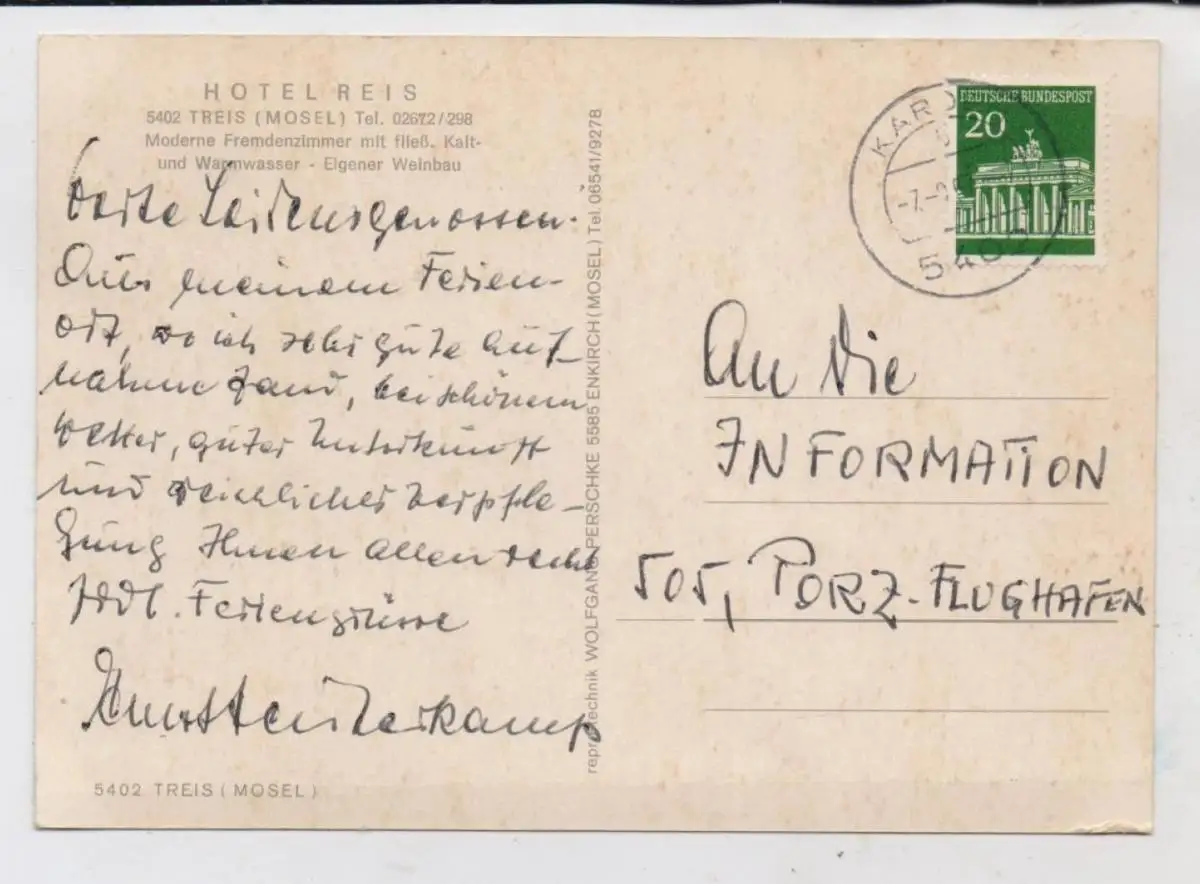 HOTEL REIS
5402 TREIS (MOSEL) Tel. 02672/298
Moderne Fremdenzimmer mit fließ. Kalt-
und Warmwasser - Eigener Weinbau
Leidensgenossen.
Aus meinem Ferien-
ort, wo ich sehr gute Auf-
nahme fand, bei schönem
Wetter, guter Unterkunft
und reichlicher Verpfle-
gung Ihnen allen recht
herzl. Feriengrüsse
5402 TREIS (MOSEL)
reprotechnik WOLFGANG PERSCHKE 5585 ENKIRCH (MOSEL) Tel. 06541/9278
DEUTSCHE BUNDESPOST
20
KARD
5402
An die
INFORMATION
505, PORZ-FLUGHAFEN